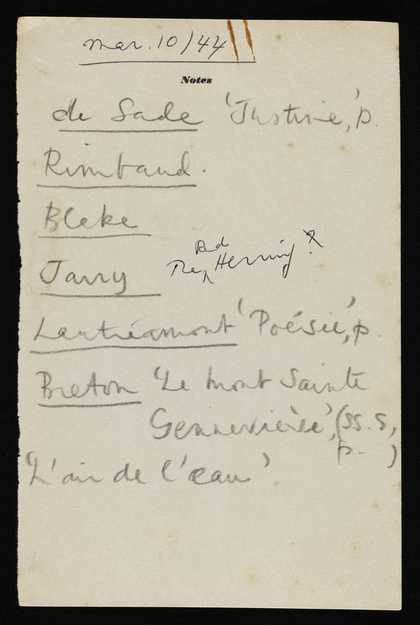 mar. 10/44
Notes
de Sade 'Justine', p.
Rimbaud.
Blake
Red
Jarry The Herring?
Lautréamont 'Poésie', p.
Breton 'Le mont Sainte
Gennevièvre', (SS. S,
p. )
'L'air de l'eau'.